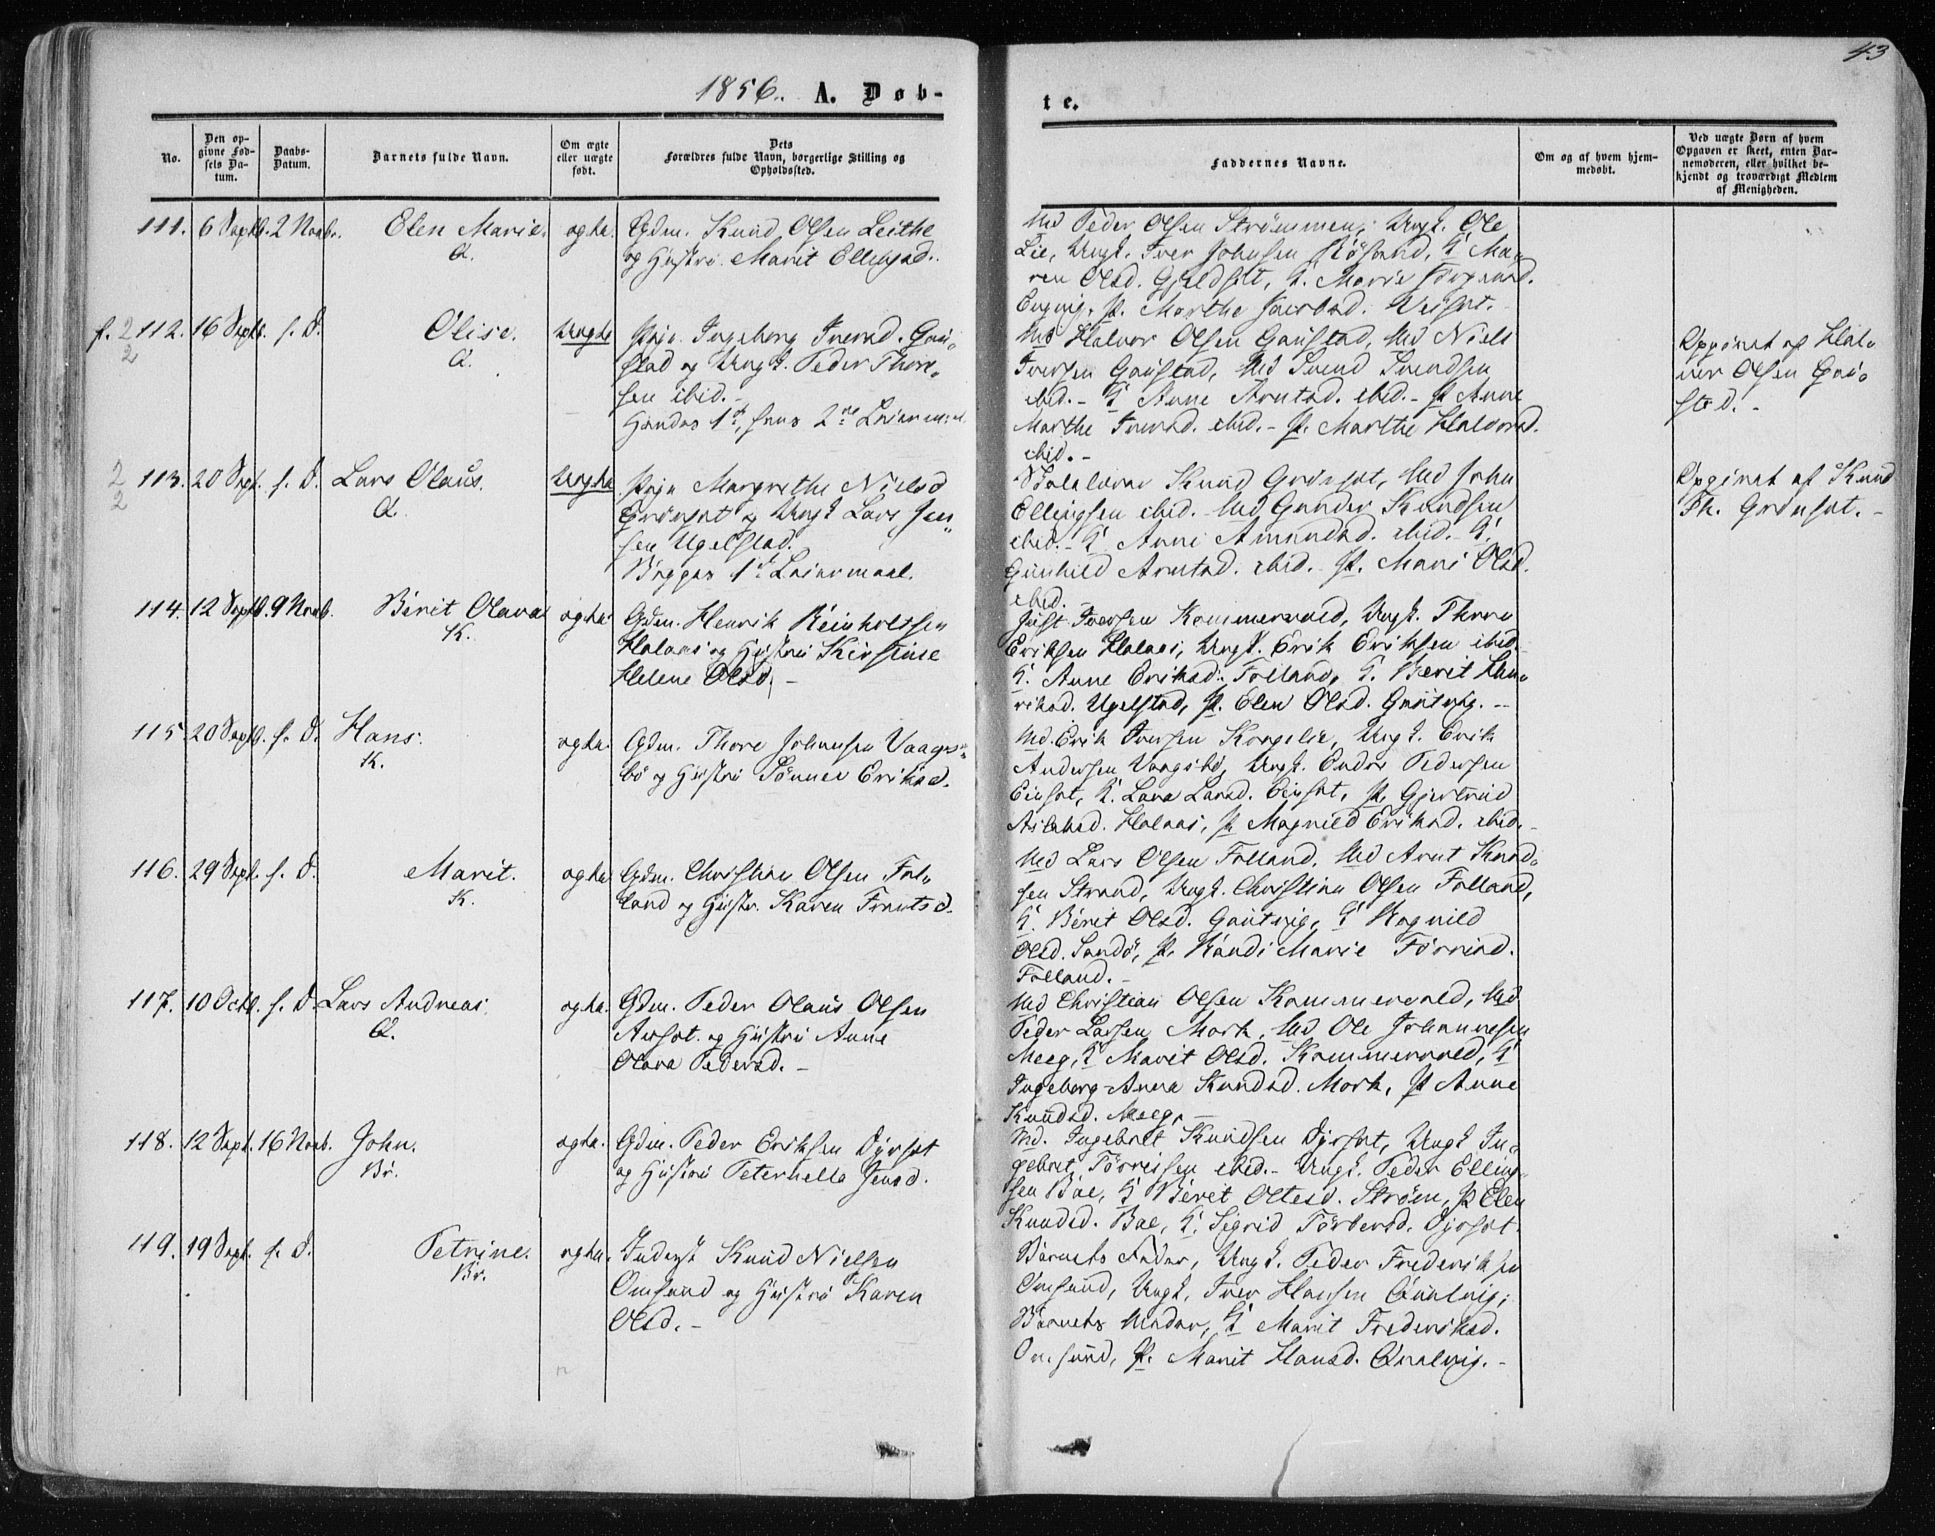 43
1856. A. Døb-
te.
No.
Den op-
givne Fød-
sels Da-
tum.
Daabs-
Datum.
Barnets fulde Navn.
Om ægte
eller uægte
født.
Dets
Forældres fulde Navn, borgerlige Stilling og
Opholdssted.
Faddernes Navne.
Om og af hvem hjem-
medøbt.
Ved uægte Børn af hvem
Opgaven er skeet, enten Bar-
nemoderen, eller hvilket be-
kjendt og troværdigt Medlem
af Menigheden.
111. 6 Septb. 2 Novb. Elen Marie. ægte.
A.
Gdm. Knud Olsen Leithe
og Hustru Marit Ellingsd.
Md Peder Olsen Strömmen, Ungk. Ole
Lie, Ungk. Iver Johnsen Rösand, K Ma-
ren Olsd. Gjeldset, K. Marie
Engvig, P. Marthe Weiset.
112. 16 Septb. s. D. Olise. Uægte
A.
Pige Ingeborg Iversd. Gau-
stad og Ungk. Peder Thore-
sen ibid.-
Hendes 1st, hans 2det Leiermaal
Md Halvor Olsen Gaustad, Md Niels
Iversen Gaustad, Md Svend Svendsen
ibid.- K Anne Arntsd. ibid.- P Anne
Marthe Iversd. ibid.- P. Marthe Halvorsd.
ibid.-
Opgivet af Hal-
vor Olsen Gau-
stad.-
113. 20 Sept. s. D. Lars Olaus. Uægte
A.
Pige Margrethe Nielsd
Grönset og Ungk Lars Jen-
sen Ugelstad.
Begges 1ste Leiermaal.
Knud Grönset, Md John
Ellingsen ibid.- Md Gunder Knudsen
ibid.- K Anne Amundsd. ibid.- K.
Gunhild Arntsd. ibid.- P. Mari Olsd.
ibid.-
Opgivet af Knud
Th. Grönset.-
114. 12 Septb. 9 Novb. Berit Olava ægte
K.
Gdm. Henrik Reinholtsen
Halaas og Hustru Kirstine
Helene Olsd. -
Just Iversen Kommervold, Ungk. Thore
Eriksen Halaas, Ungk. Erik Eriksen ibid.
K. Anne Eriksd. Folland, K. Beret Hen-
riksd. Ugelstad, P. Elen Olsd. Gautvig.-
115. 20 Septb. s. D. Hans. ægte.
K.
Gdm. Thore Johnsen Vaags-
bö og Hustru Sönnev Eriksd.
Md. Erik Iversen Korgelie, Ungk. Erik
Andersen Vaagsbö, Ungk. Ender Pedersen
Einset, K. Lava Larsd. Einset, P. Gjertrud
Aslaksd. Halaas, P Magnild Eriksd. ibid.-
116. 29 Sept. s. D. Marit. ægte.
K.
Gdm. Christian Olsen Fol-
land og Hustr. Karen Frantsd.
Md Lars Olsen Folland, Md Arnt Knud-
sen Strand, Ungk. Christian Olsen Folland,
K. Beret Olsd. Gautvig, K Ragnild
Olsd. Sandö, P. Randi Marie Törrisd.
Folland.-
117. 10 Octb. s. D. Lars Andreas. ægte.
A.
Gdm. Peder Olaus Olsen
Arset og Hustru Anne
Olava Pedersd. -
Md Christian Olsen Kommervold, Md
Peder Larsen Mork, Md Ole Johannesen
Meeg, K Marit Olsd. Kommervold, K
Ingeborg Anna Knudsd. Mork, P Anne
Knudsd. Meeg.-
118. 12 Sept. 16 Novb. John. ægte.
Br.
Gdm. Peder Eriksen Dyrset
og Hustru Peternelle Jensd.
Md. Ingebret Knudsen Dyrset, Ungk In-
gebret Törrissen ibid.- Ungk. Peder Elling-
sen Bae, K Beret Oltesd. Ström, P Elen
Knudsd. Bae, K. Sigrid Torbersd. Dyrset.
119. 19 Sept. s. D. Petrine. ægte.
Br.
Inderst Knud Nielsen
Omsund og Hustru Karen
Olsd. -
Barnets Fader, Ungk. Peder Frederiksen
Omsund, Ungk. Iver Hansen Qvalvig,
Barnets Moder, K Marit Frederiksd.
Omsund, P. Marit Hansd. Qvalvig.-